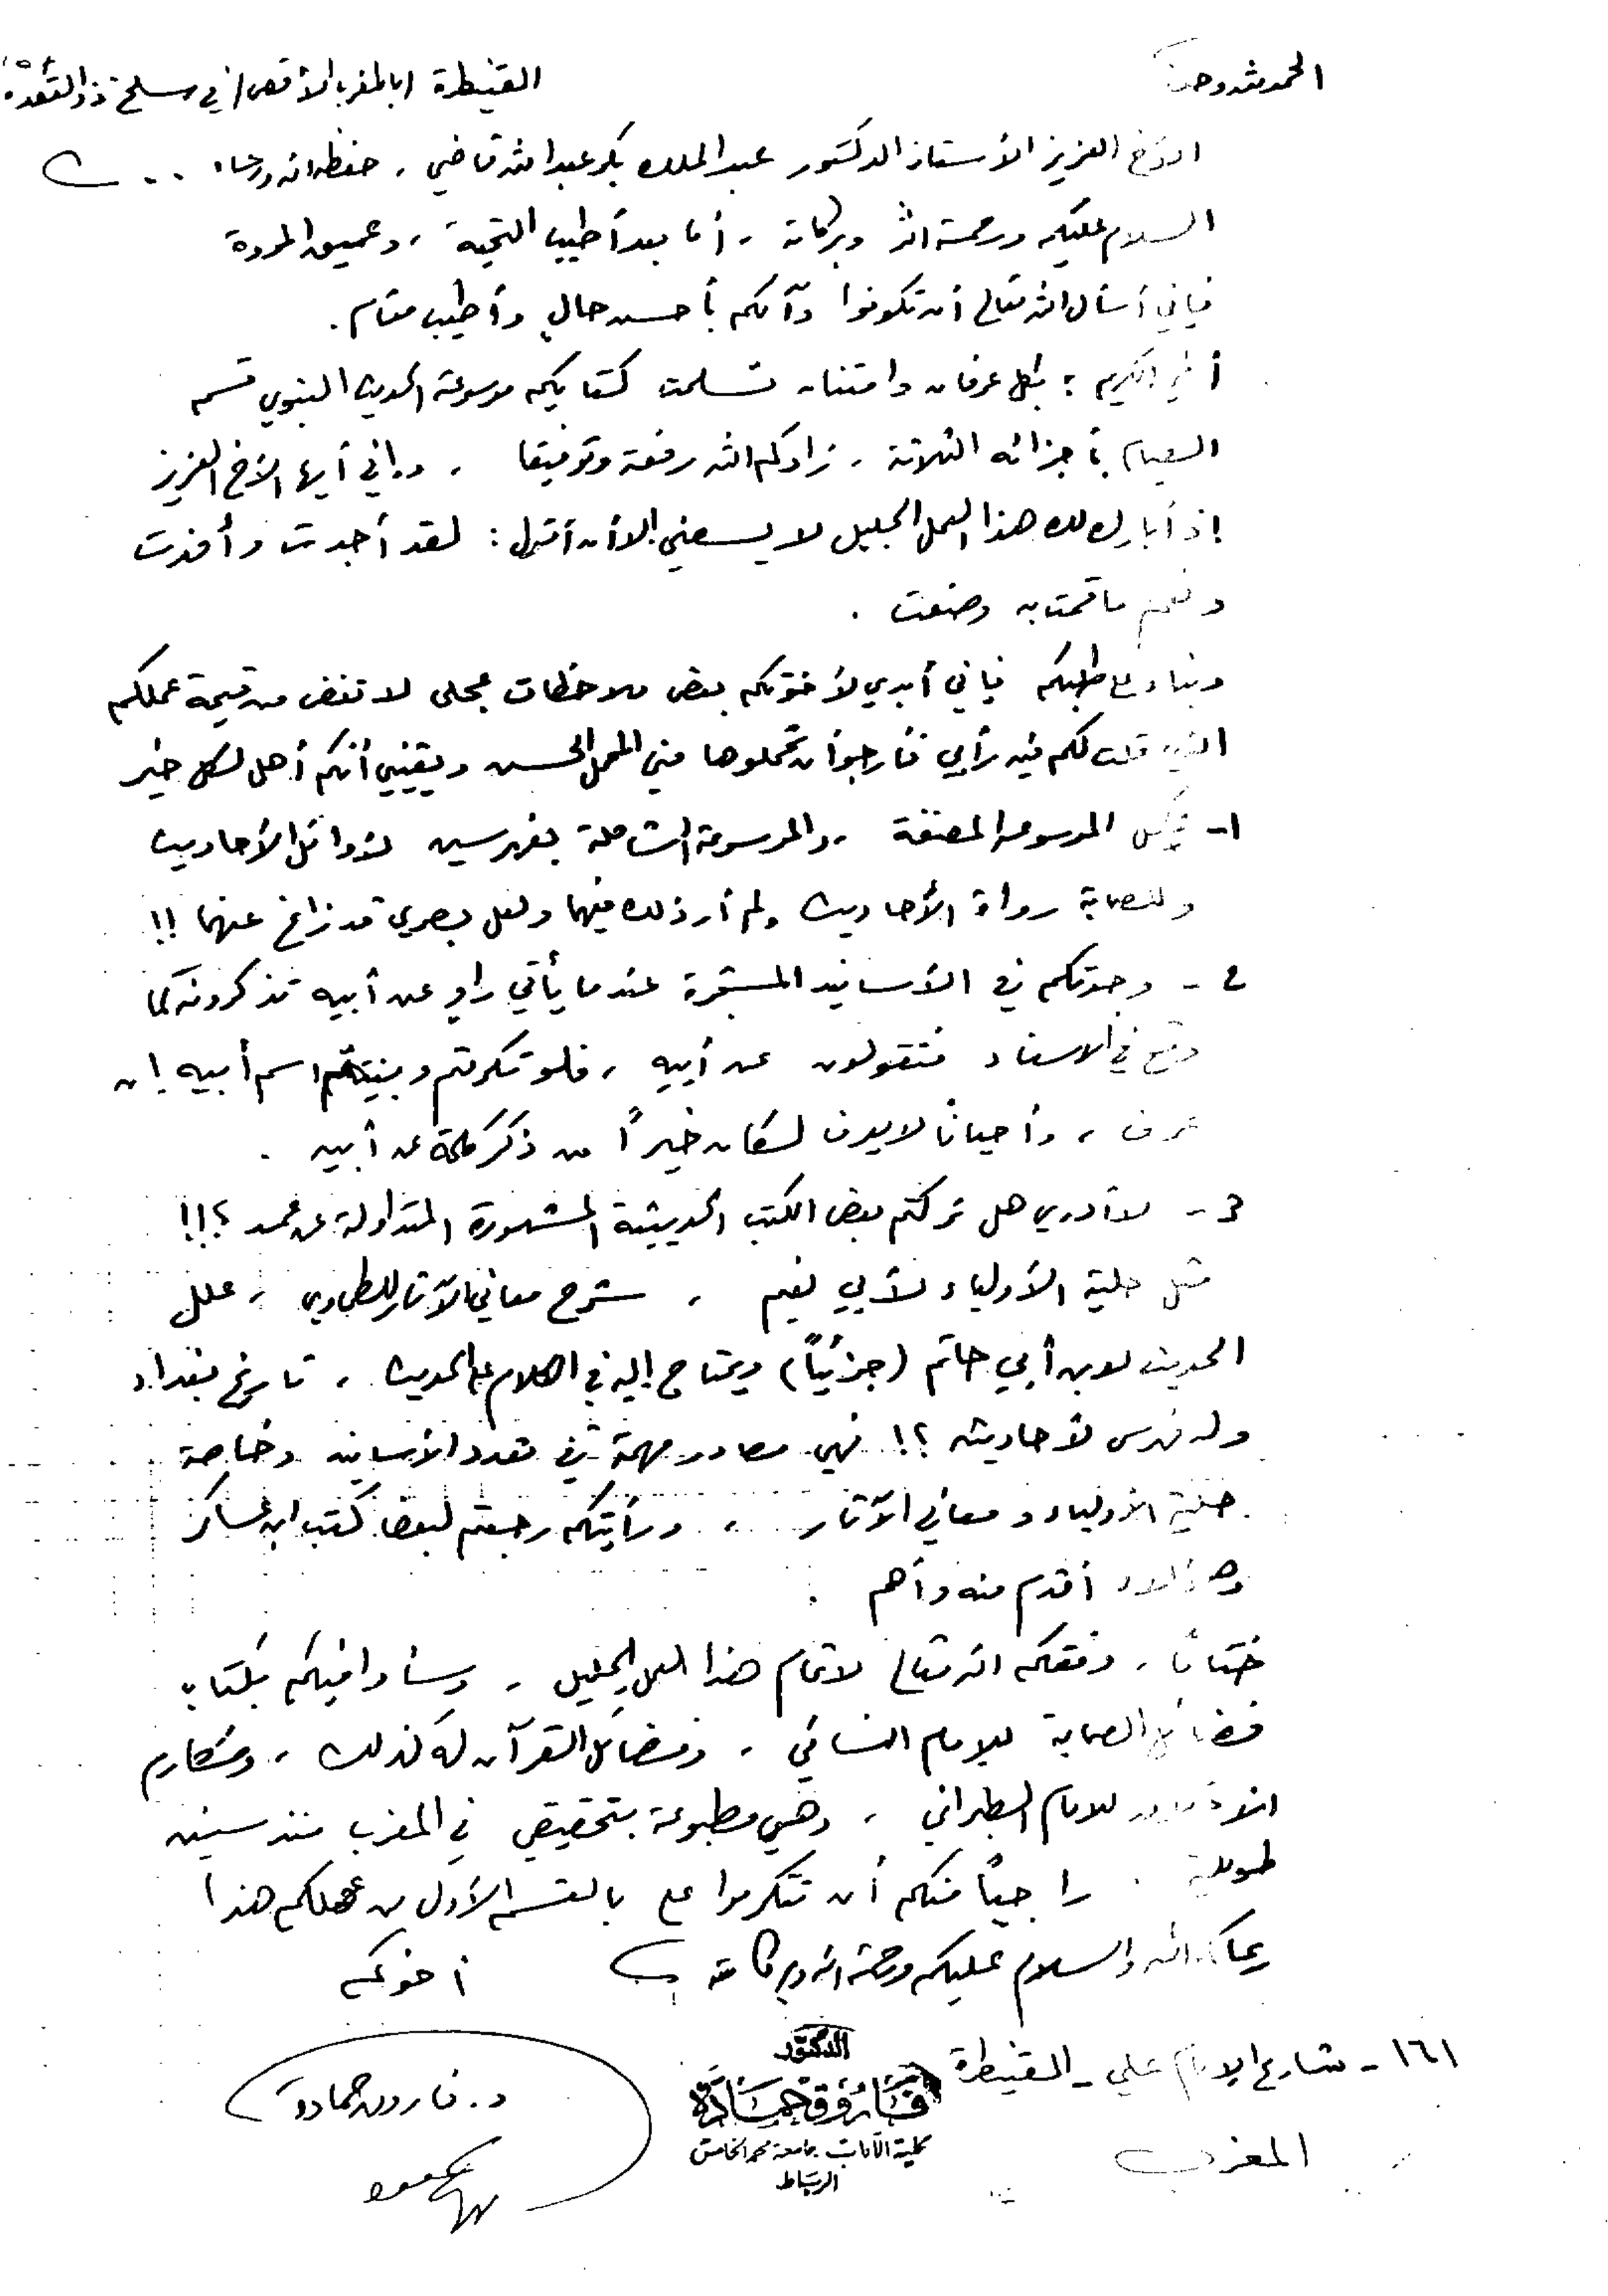 الحمد لله وحده
القنيطرة (بالمغرب الأقصى) في سلخ ذو القعدة
الأخ العزيز الأستاذ الدكتور عبد الملك بكر عبد الله قاضي، حفظه الله ورعاه ..
السلام عليكم ورحمة الله وبركاته، أما بعد أطيب التحية، وعميق المودة
فإني أسأل الله تعالى أن تكونوا وآلكم بأحسن حال وأطيب مقام.
أخي الكريم؛ بكل عرفان وامتنان تسلمت كتابكم موسوعة الحديث النبوي قسم
الصيام بأجزائه الثلاثة، زادكم الله رفعة وتوفيقا، وإني أيها الأخ العزيز
إذ أبارك لك هذا العمل الجليل لا يسعني إلا أن أقول: لقد أجدت وأفدت
ونعم ما قمت به وصنعت.
وبناء على طلبكم فإني أبدي لأخوتكم بعض ملاحظات عجلى لا تنقص من قيمة عملكم
الذي قلت لكم فيه رأيي فأرجو أن تحملوها مني المحمل الحسن ويقيني أنكم أهل لكل خير
١- الموسوعة المصنفة، والموسوعة الشاملة بفهرسين لأوائل الأحاديث
وللصحابة رواة الأحاديث ولم أر ذلك فيهما ولعل بصري قد زاغ عنهما !!
٢- وجدتكم في الأسانيد المشجرة عندما يأتي راو عن أبيه تذكرونه كما
وقع في الاسناد فتقولون عن أبيه، فلو تكرمتم وبينتم اسم أبيه إن
عرف، وأحياناً لا يعرف لكان خيراً من ذكر كلمة عن أبيه.
3- لا أدري هل تركتم بعض الكتب الحديثية المشهورة المتداولة عن عمد ؟!!
مثل حلية الأولياء لأبي نعيم، شرح معاني الآثار للطحاوي، علل
الحديث لابن أبي حاتم (جزئياً) ويحتاج إليه في الكلام على الحديث، تاريخ بغداد
وله فهرس لأحاديثه ؟! فهي مصادر مهمة في تعدد الأسانيد وخاصة
حلية الأولياء ومعاني الآثار، ورأيتكم رجعتم لبعض كتب ابن عساكر
وهؤلاء أقدم منه وأهم.
ختاماً، وفقكم الله تعالى لاتمام هذا العمل الجليل، وسأوافيكم بكتاب
فضائل الصحابة للإمام النسائي، وفضائل القرآن له كذلك، ومكارم
الأخلاق للامام الطبراني، وهي مطبوعة بتحقيقي في المغرب منذ سنين
طويلة. راجياً منكم أن تتكرموا علي بالقسم الأول من عملكم هذا
يرعاكم الله والسلام عليكم ورحمة الله وبركاته
أخوكم
د. فاروق حمادة
الدكتور
فاروق حمادة
كلية الآداب. جامعة محمد الخامس
الرباط
١٦١ - شارع الإمام علي - القنيطرة
المغرب